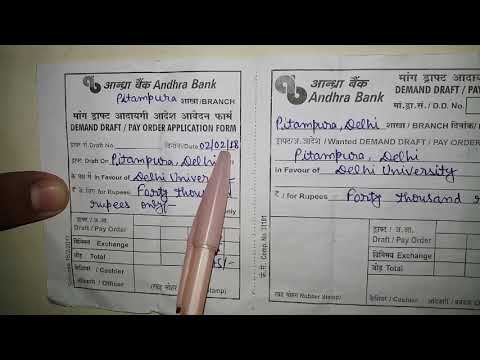 आन्ध्रा बैंक Andhra Bank
Pitampura शाखा/BRANCH
मांग ड्राफ्ट आदायगी आदेश आवेदन फार्म
DEMAND DRAFT / PAY ORDER APPLICATION FORM
Draft No. दिनांक/Date 02/02/18
Draft On Pitampura, Delhi
In Favour of Delhi University
for Rupees Forty thousand
rupees only/-
only
ड्राफ्ट / अ.आ.
Draft / Pay Order
विनिमय Exchange
जोड़ Total
केशियर / Cashier
अधिकारी / Officer
Stamp)
आन्ध्रा बैंक
Andhra Bank
मांग ड्राफ्ट आदाय
DEMAND DRAFT / PAY
मां.ड्रा.सं. / D.D. No.
Pitampura, Delhi शाखा/BRANCH दिनांक/
ड्राफ्ट/अ. आदेश / Wanted DEMAND DRAFT / PAY OR
Pitampura, Delhi
In Favour of Delhi University
₹ / for Rupees Forty thousand
ड्राफ्ट / अ.आ.
Draft / Pay Order
विनिमय Exchange
जोड़ Total
केशियर / Cashier
Rubber Stamp)